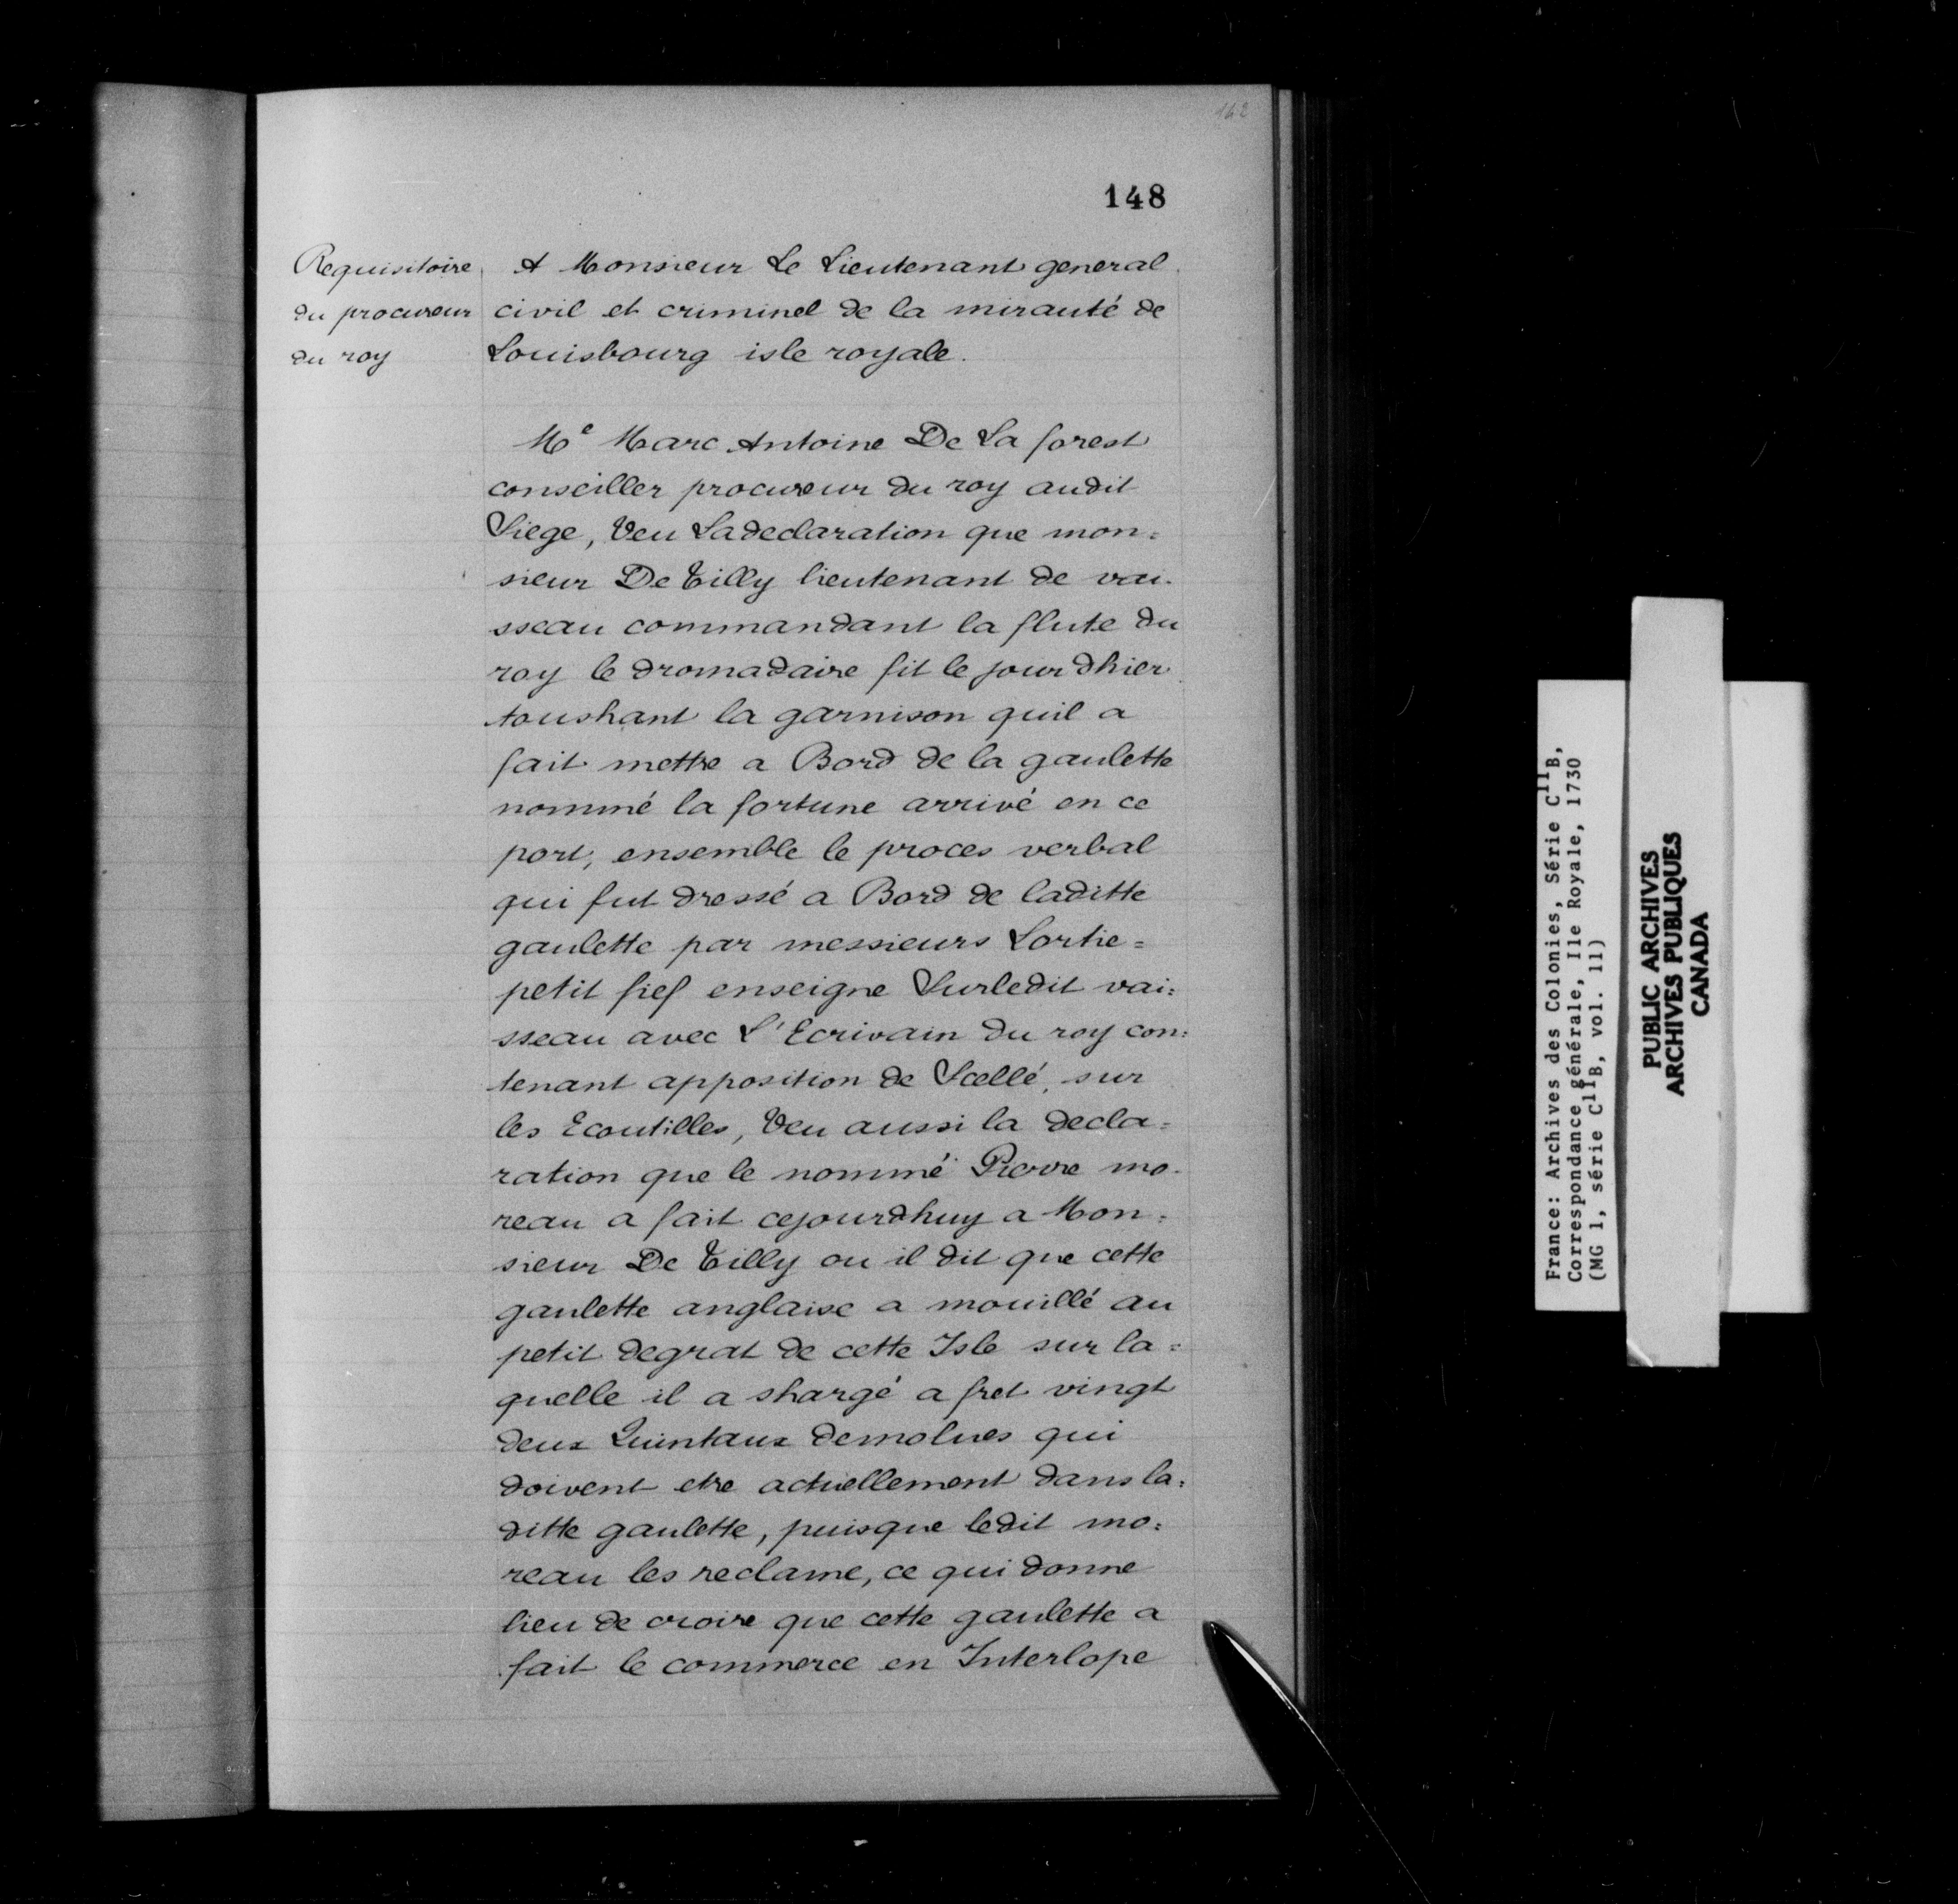 162
148
Requisitoire
du procureur
du roy
A Monsieur Le Lieutenant general
civil et criminel de la mirauté de
Louisbourg isle royale.
Me Marc Antoine De La forest
conseiller procureur du roy audit
Siege, Veu Ladeclaration que mon=
sieur De Tilly lieutenant de vai-
sseau commandant la flute du
roy le dromadaire fit le jour dhier
toushant la garnison quil a
fait mettre a Bord de la gaulette
nommé la fortune arrivé en ce
port, ensemble le proces verbal
qui fut dressé a Bord de laditte
gaulette par messieurs Lortie=
petit fief enseigne Surledit vai=
sseau avec L'Ecrivain du roy con=
tenant apposition de Scellé, sur
les Ecoutilles, Veu aussi la decla=
ration que le nommé Pierre mo-
reau a fait cejourdhuy a Mon=
sieur De Tilly ou il dit que cette
gaulette anglaise a mouillé au
petit degrat de cette Isle sur la=
quelle il a shargé a fret vingt
deux Quintaux demolues qui
doivent etre actuellement dans la=
ditte gaulette, puisque ledit mo=
reau les reclame, ce qui donne
lieu de croire que cette gaulette a
fait le commerce en Interlope
France: Archives des Colonies, Série C11B,
Correspondance générale, Ile Royale, 1730
(MG 1, série C11B, vol. 11)
PUBLIC ARCHIVES
ARCHIVES PUBLIQUES
CANADA